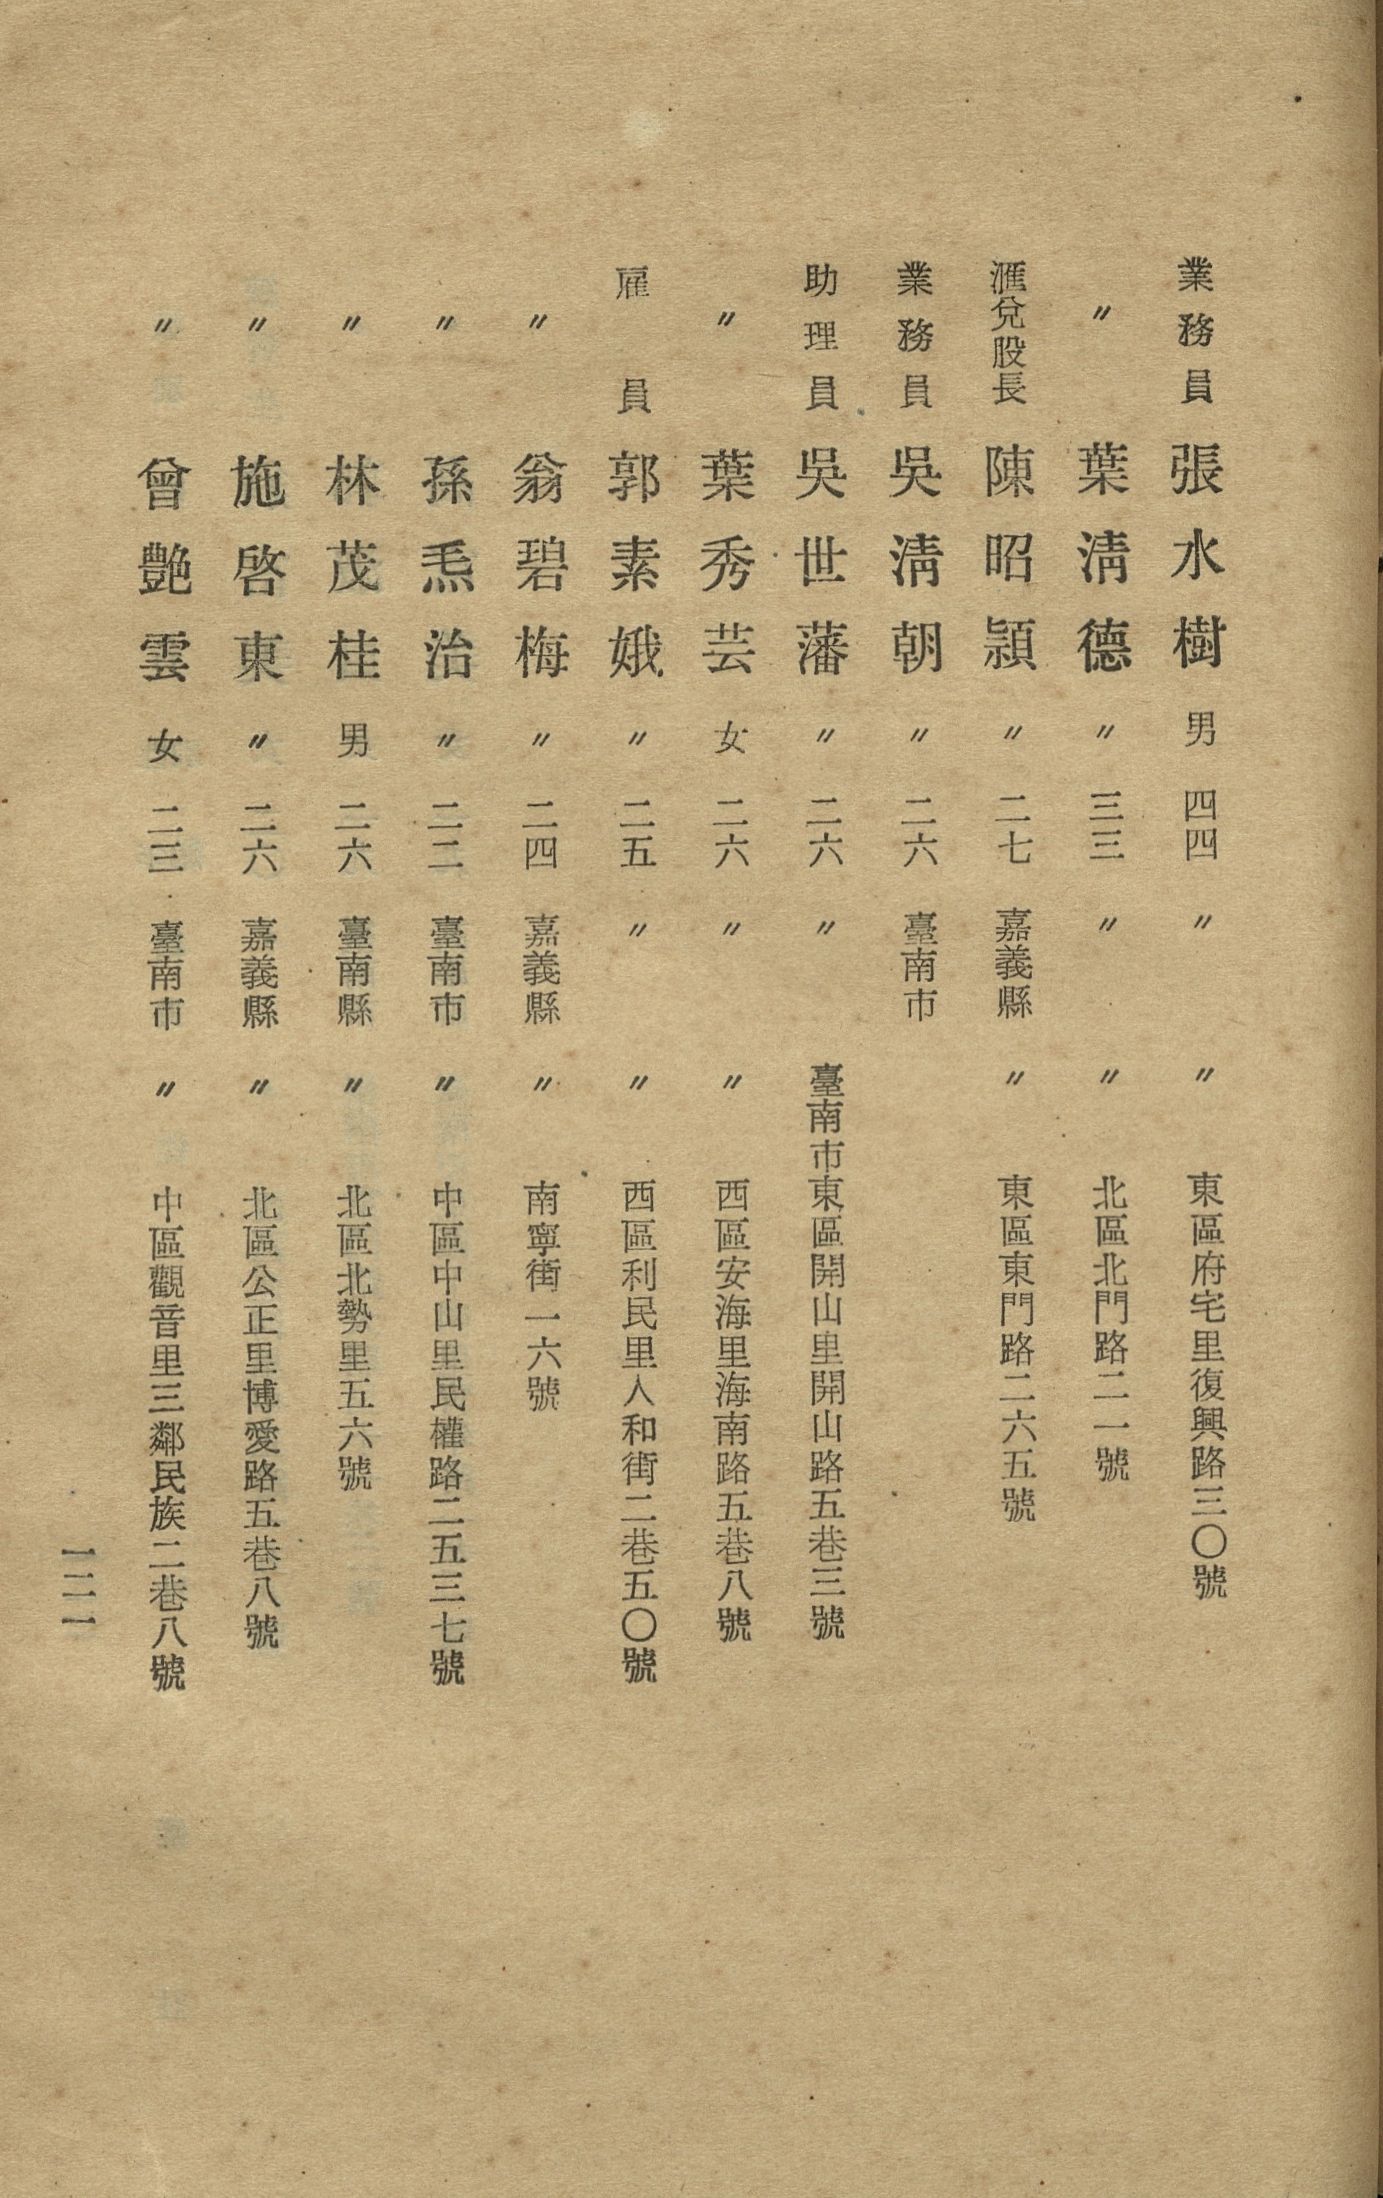 業務員 張水樹 男 四四 〃 〃 東區府宅里復興路三〇號
〃 葉淸德 〃 三三 〃 〃 北區北門路二一號
滙兌股長 陳昭頴 〃 二七 嘉義縣 〃 東區東門路二六五號
業務員 吳淸朝 〃 二六 臺南市
助理員 吳世藩 〃 二六 〃 臺南市東區開山里開山路五巷三號
〃 葉秀芸 女 二六 〃 〃 西區安海里海南路五巷八號
雇員 郭素娥 〃 二五 〃 〃 西區利民里人和街二巷五〇號
〃 翁碧梅 〃 二四 嘉義縣 〃 南寧街一六號
〃 孫 治 〃 二二 臺南市 〃 中區中山里民權路二五三七號
〃 林茂桂 男 二六 臺南縣 〃 北區北勢里五六號
〃 施啓東 〃 二六 嘉義縣 〃 北區公正里博愛路五巷八號
〃 曾艷雲 女 二三 臺南市 〃 中區觀音里三鄰民族二巷八號
一二一